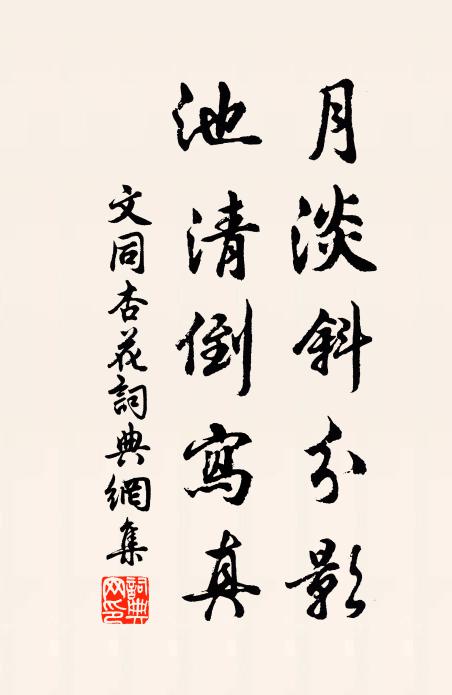 月淡斜分影
池清倒寫真
文同杏花詞典網集
詞典網印